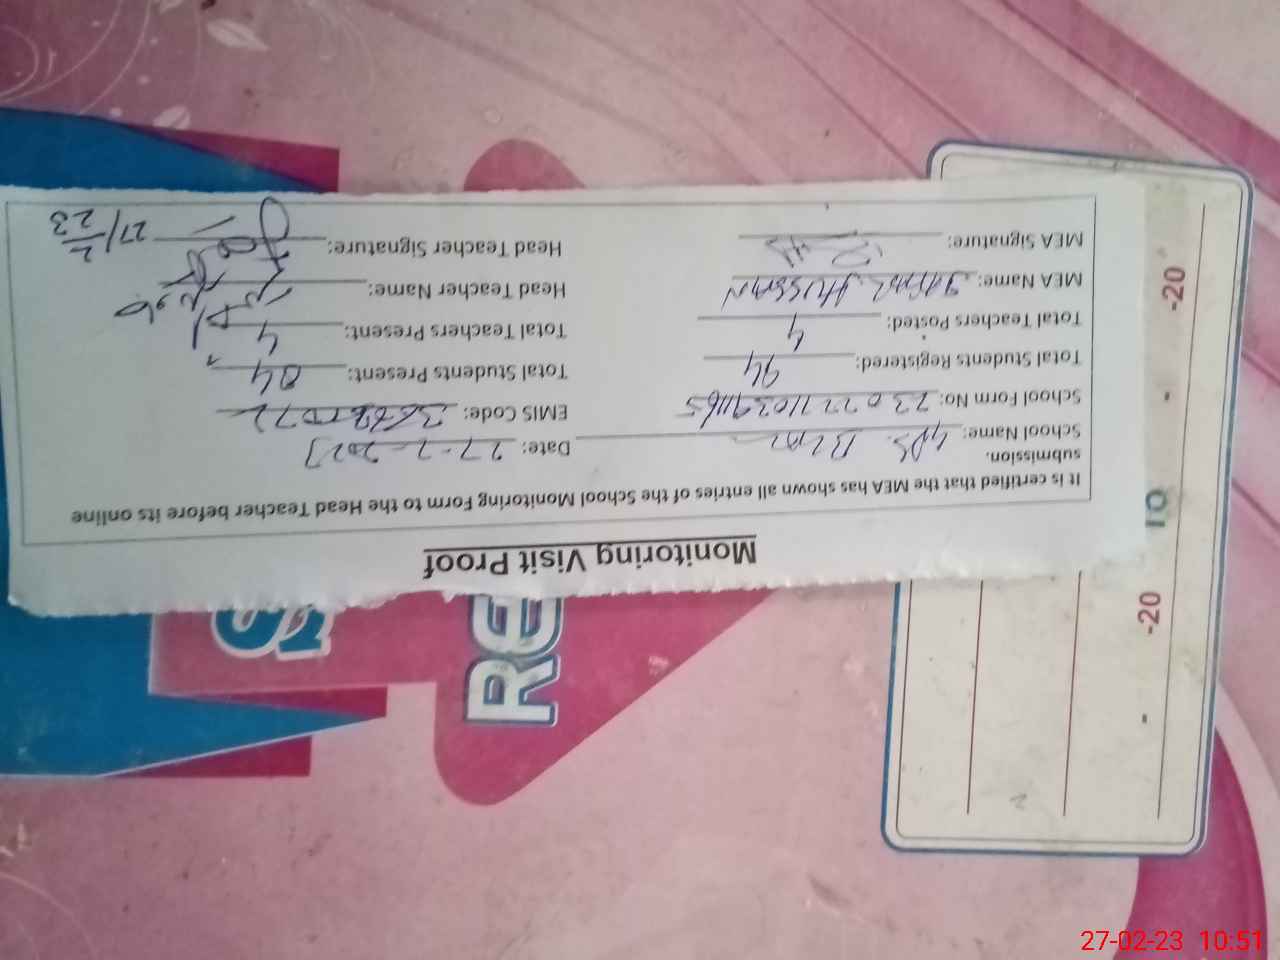 Monitoring Visit Proof
It is certified that the MEA has shown all entries of the School Monitoring Form to the Head Teacher before its online
submission.
School Name: GPS. Date: 27-2-2023
School Form No: EMIS Code:
Total Students Registered: 94 Total Students Present: 84
Total Teachers Posted: 4 Total Teachers Present: 4
MEA Name: HUSSAIN Head Teacher Name:
MEA Signature: Head Teacher Signature: 27/2/23
RE
-20
-20
TO
-
-
27-02-23 10:51